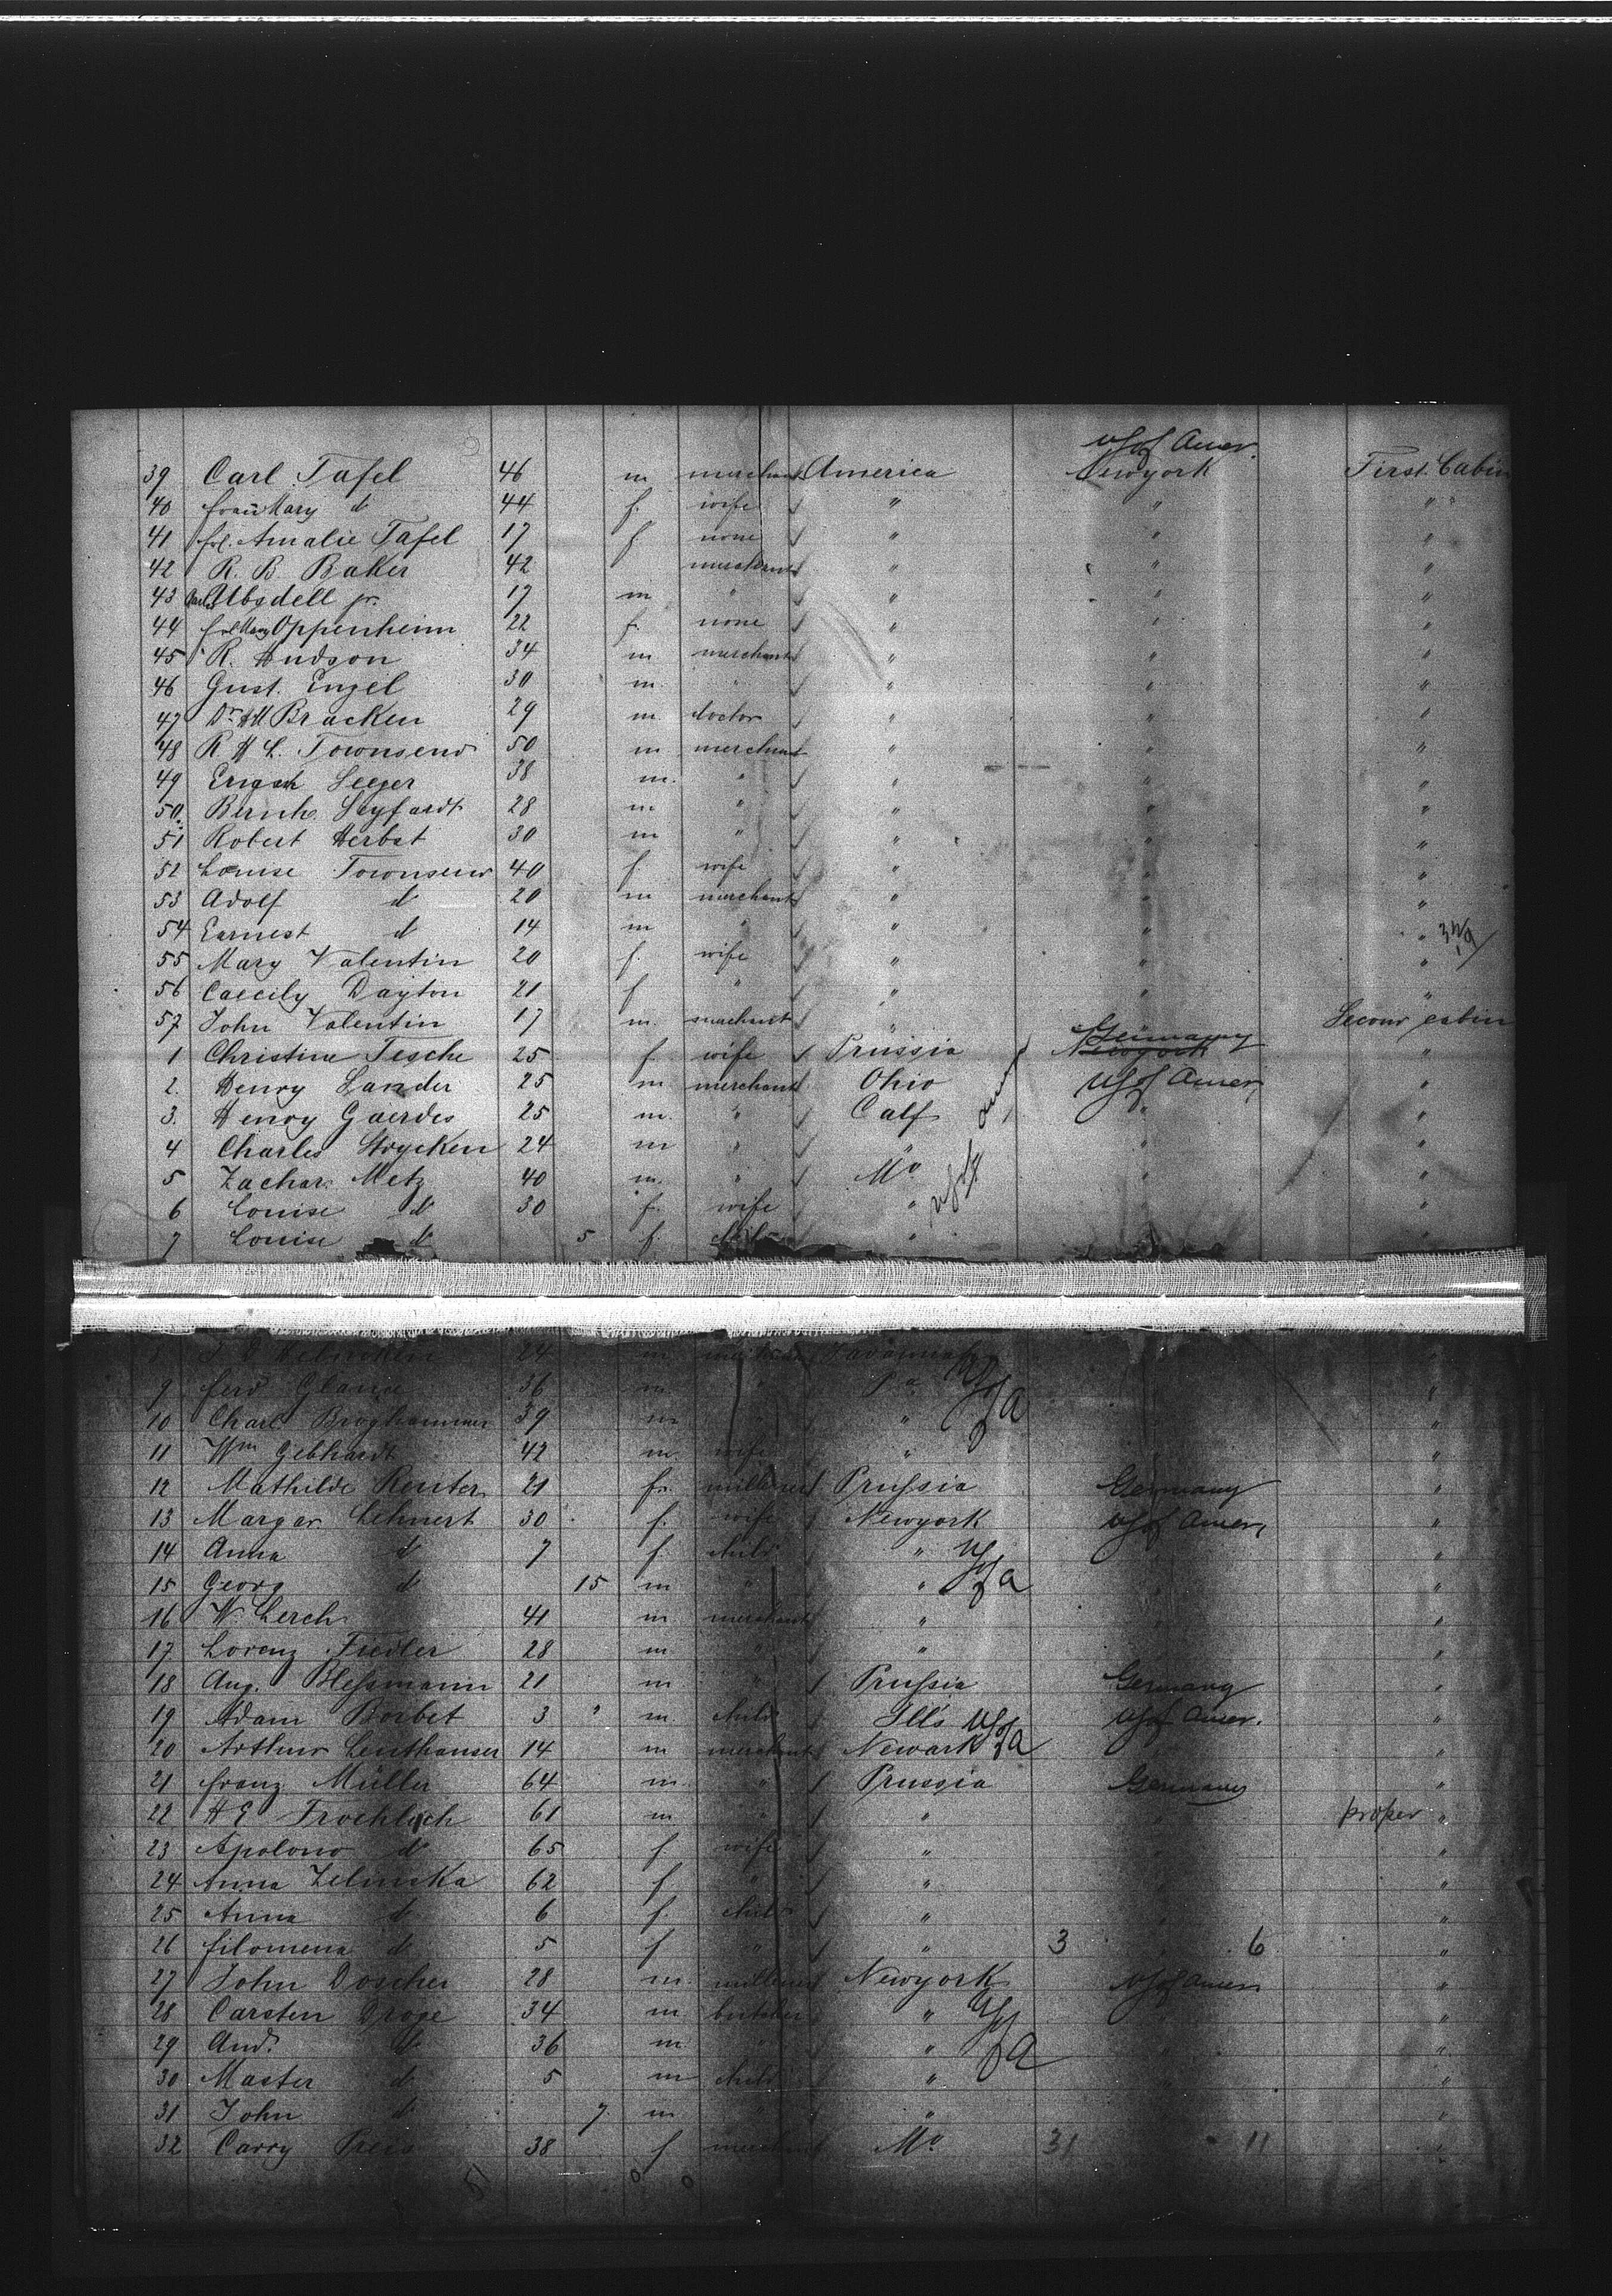 U S of Amer.
39 Carl Tafel 46 m merchant America Newyork First Cabin
40 frau Mary d 44 f. wife " " " "
41 frl. Amalie Tafel 17 f. none " " "
42 R. B. Baker 42 merchant " " "
43 Absdell jr. 17 m " " " "
44 frl Mary Oppenheim 22 f. none " " "
45 R. Hudson 34 m merchant " " "
46 Gust. Engel 30 m. " " " "
47 Dr. Bracken 29 m. doctor " " "
48 R H L. Townsend 50 m merchant " " "
49 Seeger 38 m. " " " "
50. Bernh. Seyfardt 28 m " " " "
51 Robert Herbst 30 m " " " "
52 Louise Townsend 40 f. wife " " "
53 Adolf d 20 m merchant " " "
54 Earnest d 14 m " " " "
55 Mary Valentin 20 f. wife " " "
56 Caecily Dayton 21 f " " " "
57 John Valentin 17 m. merchant " Second cabin
Germany
1 Christine Tesche 25 f. wife Prussia Newyork "
2. Henry Sander 25 m merchant Ohio U S of Amer, "
3. Henry Gaerdes 25 m. " Calf " "
4 Charles Strycken 24 m " " " "
5 Zachar. Metz 40 m. " Mo " "
6 Louise d 30 f. wife " "
7 Louise d 5 f. child " "
8 24 m "
9 ferd 36 m. " Pa U S of A "
10 Charl Broghammer 39 m " " "
11 Wm Gebhardt 42 m. wife " "
12 Mathilde Reuter 21 fr. milliner Prussia Germany "
13 Margar. Lehnert 30 f. wife Newyork U S of Amer, "
14 Anna d 7 f. child " U S of A "
15 Georg d 15 m " " "
16 W. Lerch 41 m. merchant " "
17 Lorenz Fiedler 28 m " " "
18 Aug. Blessmann 21 m " Prussia Germany "
19 Adam Borbet 3 " m. child Ills U S of A U S of Amer. "
20 Arthur Leuthauser 14 m merchant Newark "
21 franz Müller 64 m. " Prussia Germany "
22 H E Froehlich 61 m " " proper "
23 Apolono d 65 f wife " "
24 Anna Zelinska 62 f " " "
25 Anna d 6 f. child " "
26 filomena d 5 f " " 3 6 "
27 John Doscher 28 m. milliner Newyork U S of Amer "
28 Carsten Droge 34 m butcher " U S of A "
29 And. d 36 m. " " "
30 Master d 5 m child " "
31 John d 7 m " " "
32 Carry Preis 38 f merchant Mo 31 11 "